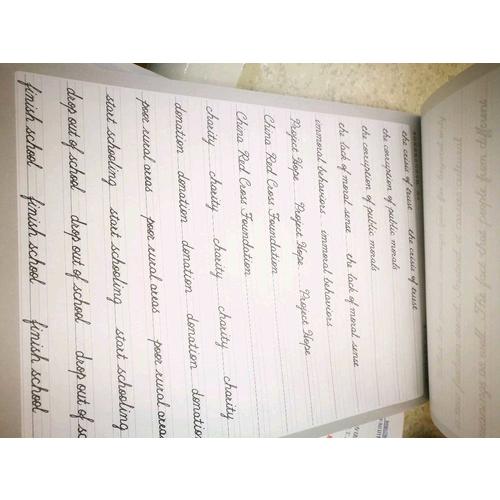 the crisis of trust the crisis of trust
the corruption of public morals
the corruption of public morals
the lack of moral sense the lack of moral sense
immoral behaviors immoral behaviors
Project Hope Project Hope Project Hope
China Red Cross Foundation
China Red Cross Foundation
charity charity charity charity
donation donation donation donation
poor rural areas poor rural areas poor rural areas
start schooling start schooling start schooling
drop out of school drop out of school drop out of sc
finish school finish school finish school